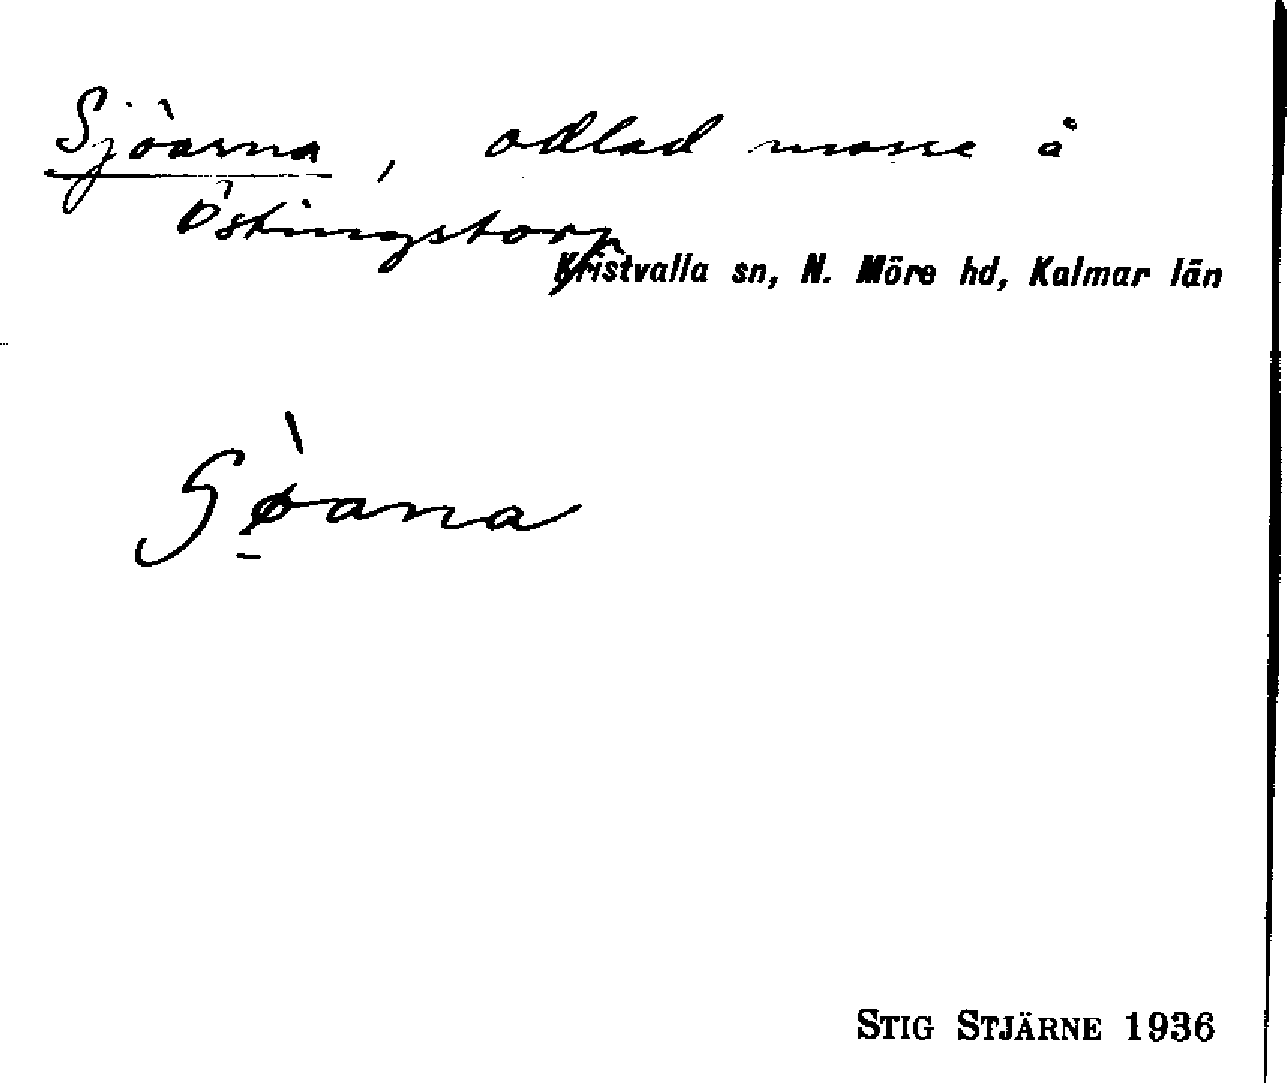 Sjöarna, odlad mosse å
Östingstorp
Kristvalla sn, N. Möre hd, Kalmar län
Sø̀ana
STIG STJÄRNE 1936